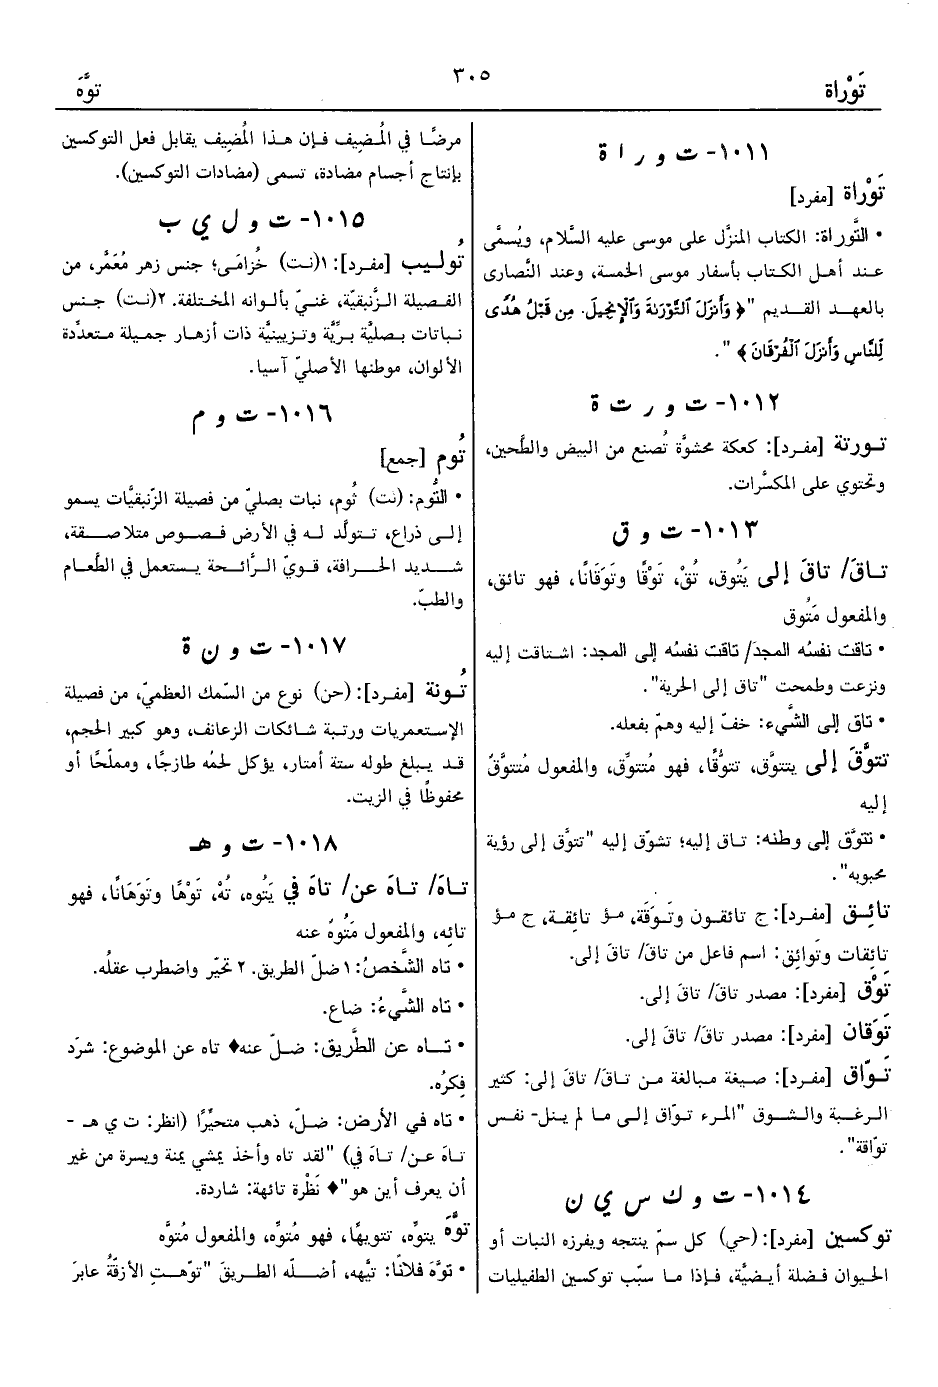 تَوْراة
٣٠٥
توَّهَ
١٠١١- ت و ر ا ة
تَوْراة [مفرد]
• التَّوراة: الكتاب المنزَّل على موسى عليه السَّلام، ويُسمَّى
عند أهل الكتاب بأسفار موسى الخمسة، وعند النَّصارى
بالعهد القديم "﴿ وَأَنزَلَ ٱلتَّوْرَىٰةَ وَٱلْإِنجِيلَ. مِن قَبْلُ هُدًى
لِّلنَّاسِ وَأَنزَلَ ٱلْفُرْقَانَ ﴾ ".
١٠١٢- ت و ر ت ة
تورتة [مفرد]: كعكة محشوَّة تُصنع من البيض والطَّحين،
وتحتوي على المكسَّرات.
١٠١٣- ت و ق
تاقَ/ تاقَ إلى يَتُوق، تُقْ، تَوْقًا وتَوَقانًا، فهو تائق،
والمفعول مَتُوق
• تاقت نفسُه المجدَ/ تاقت نفسُه إلى المجد: اشتاقت إليه
ونزعت وطمحت "تاق إلى الحرية".
• تاق إلى الشَّيء: خفّ إليه وهمّ بفعله.
تتوَّقَ إلى يتتوَّق، تتوُّقًا، فهو مُتتوِّق، والمفعول مُتتوَّقٌ
إليه
• تتوَّق إلى وطنه: تاق إليه؛ تشوّق إليه "تتوَّق إلى رؤية
محبوبه".
تائِق [مفرد]: ج تائقون وتَوَقَة، مؤ تائقة، ج مؤ
تائقات وتَوائِق: اسم فاعل من تاقَ/ تاقَ إلى.
تَوْق [مفرد]: مصدر تاقَ/ تاقَ إلى.
تَوَقان [مفرد]: مصدر تاقَ/ تاقَ إلى.
تَوّاق [مفرد]: صيغة مبالغة من تاقَ/ تاقَ إلى: كثير
الرغبة والشوق "المرء توّاق إلى ما لم ينل- نفس
توّاقة".
١٠١٤- ت و ك س ي ن
توكسين [مفرد]: (حي) كل سمّ ينتجه ويفرزه النبات أو
الحيوان فضلة أيضيَّة، فإذا ما سبّب توكسين الطفيليات
مرضًا في المُضِيف فإن هذا المُضِيف يقابل فعل التوكسين
بإنتاج أجسام مضادة، تسمى (مضادات التوكسين).
١٠١٥- ت و ل ي ب
تُوليب [مفرد]: ١(نت) خُزامَى؛ جنس زهر مُعَمَّر، من
الفصيلة الزَّنبقيّة، غنيّ بألوانه المختلفة. ٢(نت) جنس
نباتات بصليَّة برِّيَّة وتزيينيَّة ذات أزهار جميلة متعدَّدة
الألوان، موطنها الأصليّ آسيا.
١٠١٦- ت و م
تُوم [جمع]
• التُّوم: (نت) ثُوم، نبات بصليّ من فصيلة الزَّنبقيَّات يسمو
إلى ذراع، تتولَّد له في الأرض فصوص متلاصقة،
شديد الحرافة، قويّ الرَّائحة يستعمل في الطَّعام
والطبّ.
١٠١٧- ت و ن ة
تُونة [مفرد]: (حن) نوع من السَّمك العظميّ، من فصيلة
الإستعمريات ورتبة شائكات الزعانف، وهو كبير الحجم،
قد يبلغ طوله ستة أمتار، يؤكل لحمُه طازجًا، ومملّحًا أو
محفوظًا في الزيت.
١٠١٨- ت و هـ
تاهَ/ تاهَ عن/ تاهَ في يَتُوه، تُهْ، تَوْهًا وتَوَهَانًا، فهو
تائِه، والمفعول مَتُوهٌ عنه
• تاه الشَّخصُ: ١ ضلّ الطريق. ٢ تحيّر واضطرب عقلُه.
• تاه الشَّيءُ: ضاع.
• تاه عن الطَّريق: ضلّ عنه♦ تاه عن الموضوع: شرَد
فِكرُه.
• تاه في الأرض: ضلّ، ذهب متحيِّرًا (انظر: ت ي هـ -
تاهَ عن/ تاهَ في) "لقد تاه وأخذ يمشي يمنة ويسرة من غير
أن يعرف أين هو"♦ نَظْرة تائهة: شاردة.
توَّهَ يتوِّه، تتويهًا، فهو مُتوِّه، والمفعول مُتوَّه
• توَّهَ فلانًا: تيَّهه، أضلّه الطريقَ "توّهتِ الأزقّةُ عابرَ